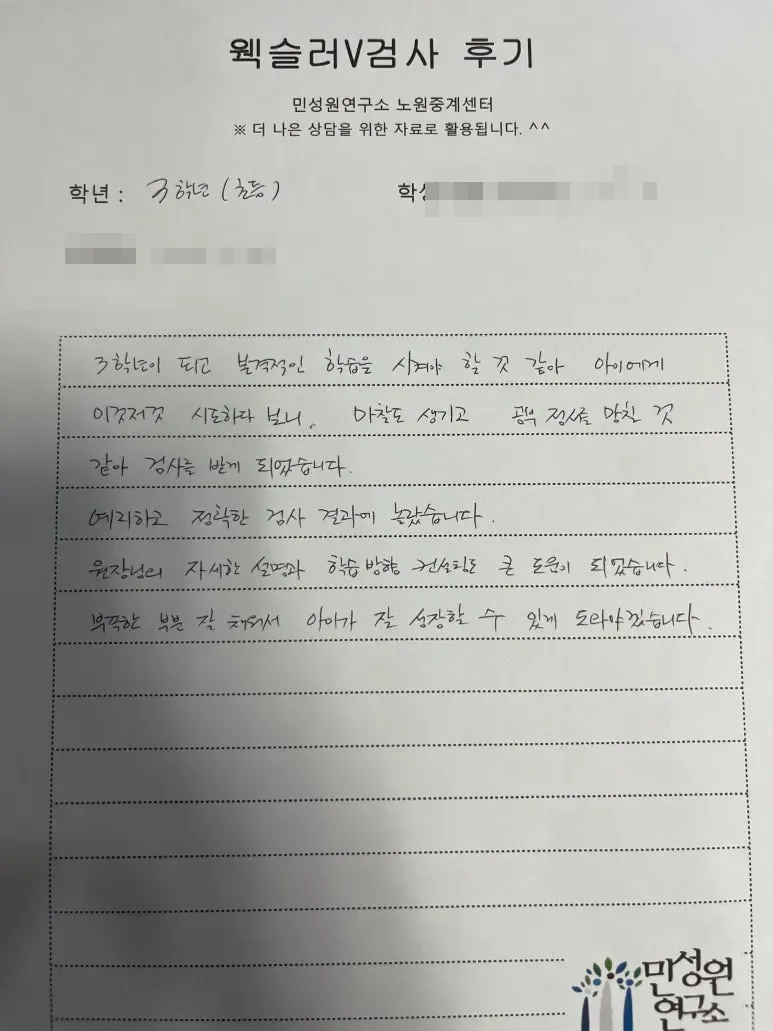 웩슬러V검사 후기
민성원연구소 노원중계센터
※ 더 나은 상담을 위한 자료로 활용됩니다. ^^
학년 : 3학년 (초등)
3학년이 되고 본격적인 학습을 시켜야 할 것 같아 아이에게
이것저것 시도하다 보니, 마찰도 생기고 공부 정서를 망칠 것
같아 검사를 받게 되었습니다.
예리하고 정확한 검사 결과에 놀랐습니다.
원장님의 자세한 설명과 학습 방향 컨설팅도 큰 도움이 되었습니다.
부족한 부분 잘 채워서 아이가 잘 성장할 수 있게 도와야겠습니다.
민성원
연구소